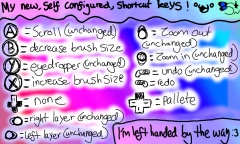 My new, self configured, shortcut keys!
A = Scroll (unchanged)
B = decrease brush size
Y = eyedropper (unchanged)
X = increase brush size
= none
= right layer (unchanged)
= left layer (unchanged)
= Zoom out (unchanged)
= Zoom in (unchanged)
= undo (unchanged)
= redo
= Pallete
I'm left handed by the way :3